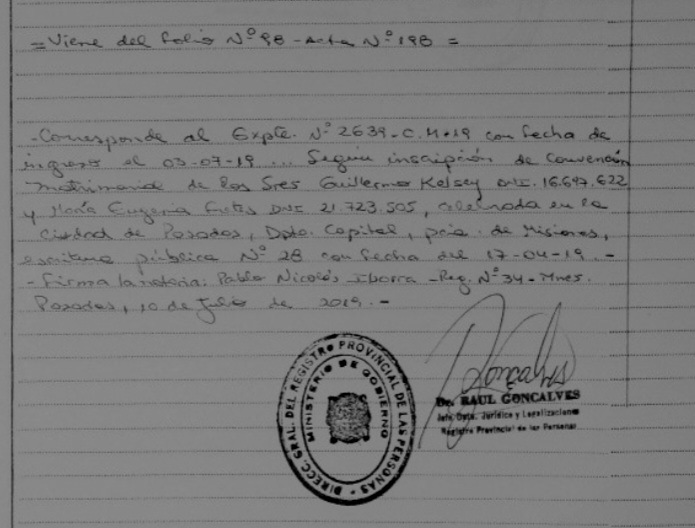 = Viene del folio Nº 98 - Acta Nº 198 =
- Corresponde al Expte. Nº 2639 - C. M - 19 con fecha de
ingreso el 03-07-19 ... Seguin inscripción de Convención
matrimonial de los Sres Guillermo Kelsey DNI. 16.697.622
y María Eugenia DNI 21.723.505, celebrada en la
Ciudad de Posadas, Dpto. Capital, pcia. de Misiones,
escritura pública Nº 28 con fecha del 17-04-19. -
- Firma la notaria: Pablo Nicolás Iborra - Reg. Nº 34 - Mnes.
Posadas, 10 de Julio de 2019. -
DIRECC. GRAL. DEL REGISTRO PROVINCIAL DE LAS PERSONAS
MINISTERIO DE GOBIERNO
Goncalves
Dr. RAUL GONCALVES
Jefe Dpto. Jurídica y Legalizaciones
Registro Provincial de las Personas